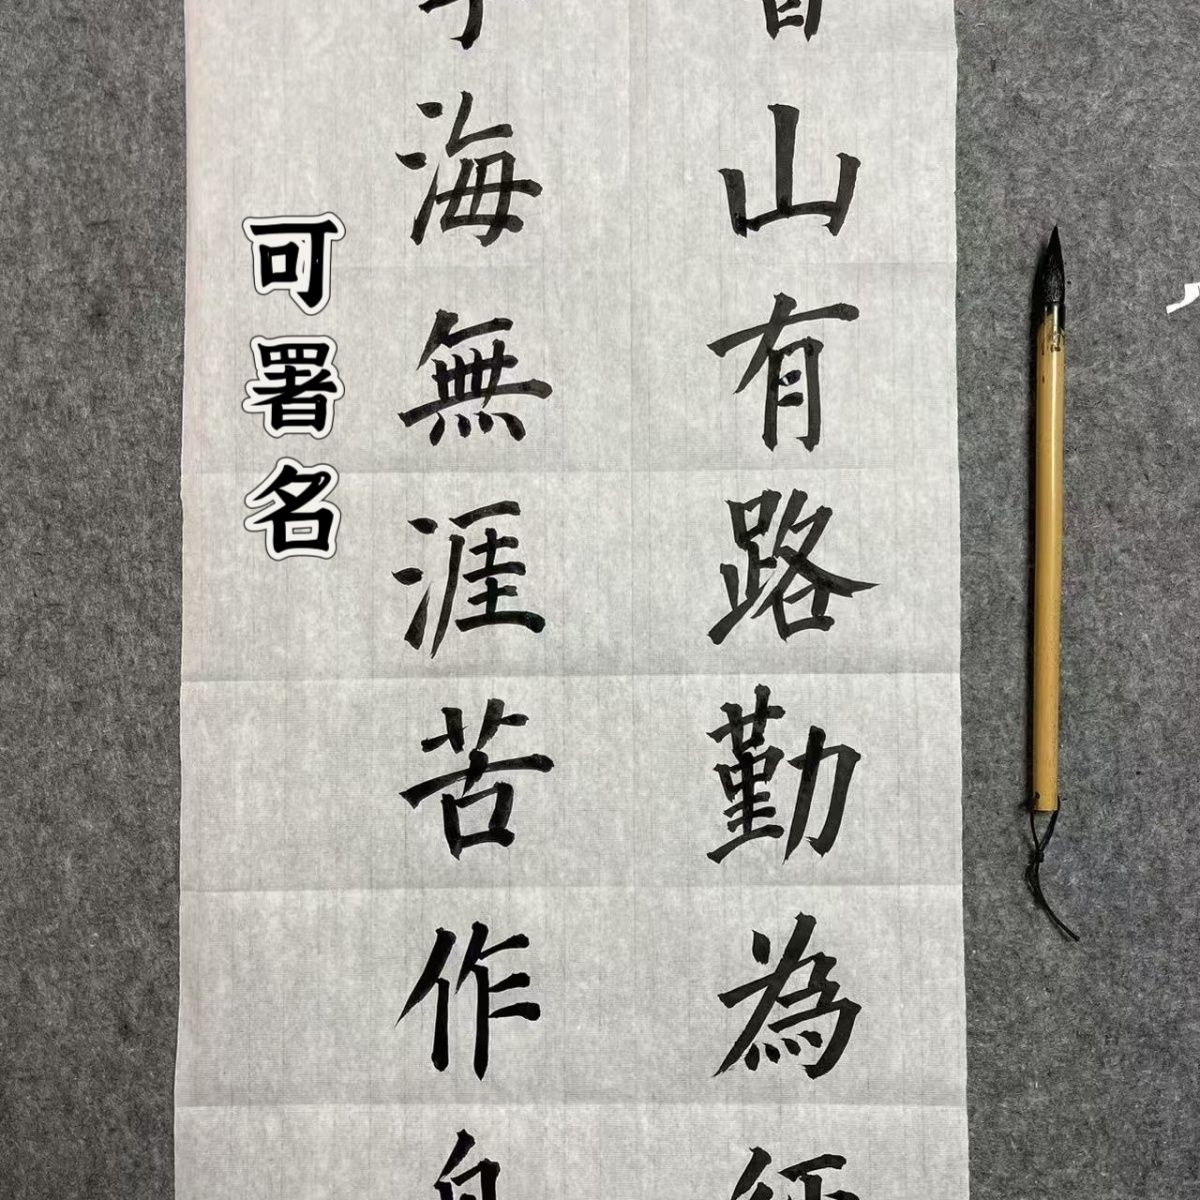 山有路勤為
海無涯苦作
可署名